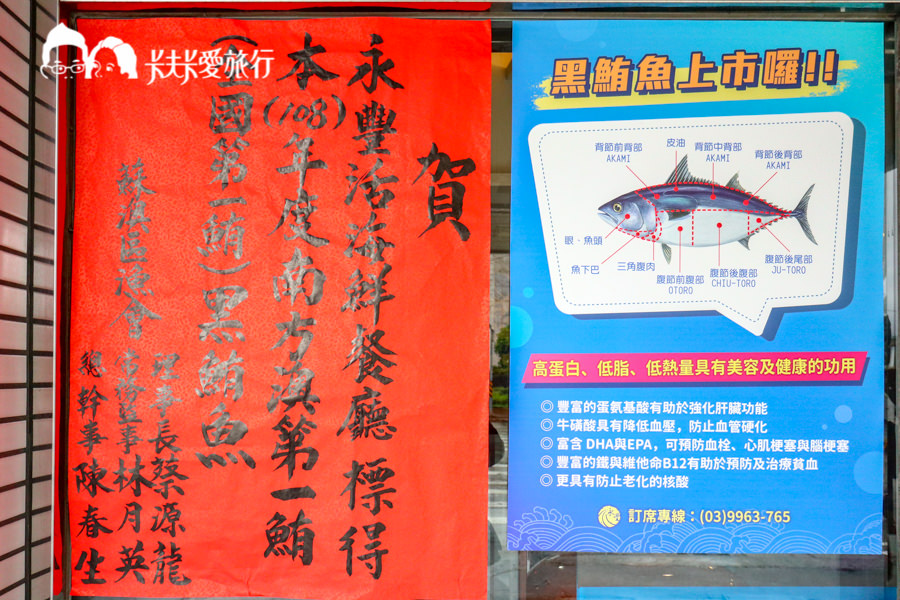 卡夫卡愛旅行
賀
永豐活海鮮餐廳標得
本(108)年度南方澳第一鮪
(全國第一鮪)黑鮪魚
蘇澳區漁會
理事長蔡源龍
常務監事林月英
總幹事陳春生
黑鮪魚上市囉!!
背節前背部
AKAMI
皮油
背節中背部
AKAMI
背節後背部
AKAMI
眼、魚頭
魚下巴
三角腹肉
腹節前腹部
OTORO
腹節後腹部
CHIU-TORO
腹節後尾部
JU-TORO
高蛋白、低脂、低熱量具有美容及健康的功用
◎ 豐富的蛋氨基酸有助於強化肝臟功能
◎ 牛磺酸具有降低血壓，防止血管硬化
◎ 富含 DHA與EPA，可預防血栓、心肌梗塞與腦梗塞
◎ 豐富的鐵與維他命B12有助於預防及治療貧血
◎ 更具有防止老化的核酸
訂席專線：(03)9963-765